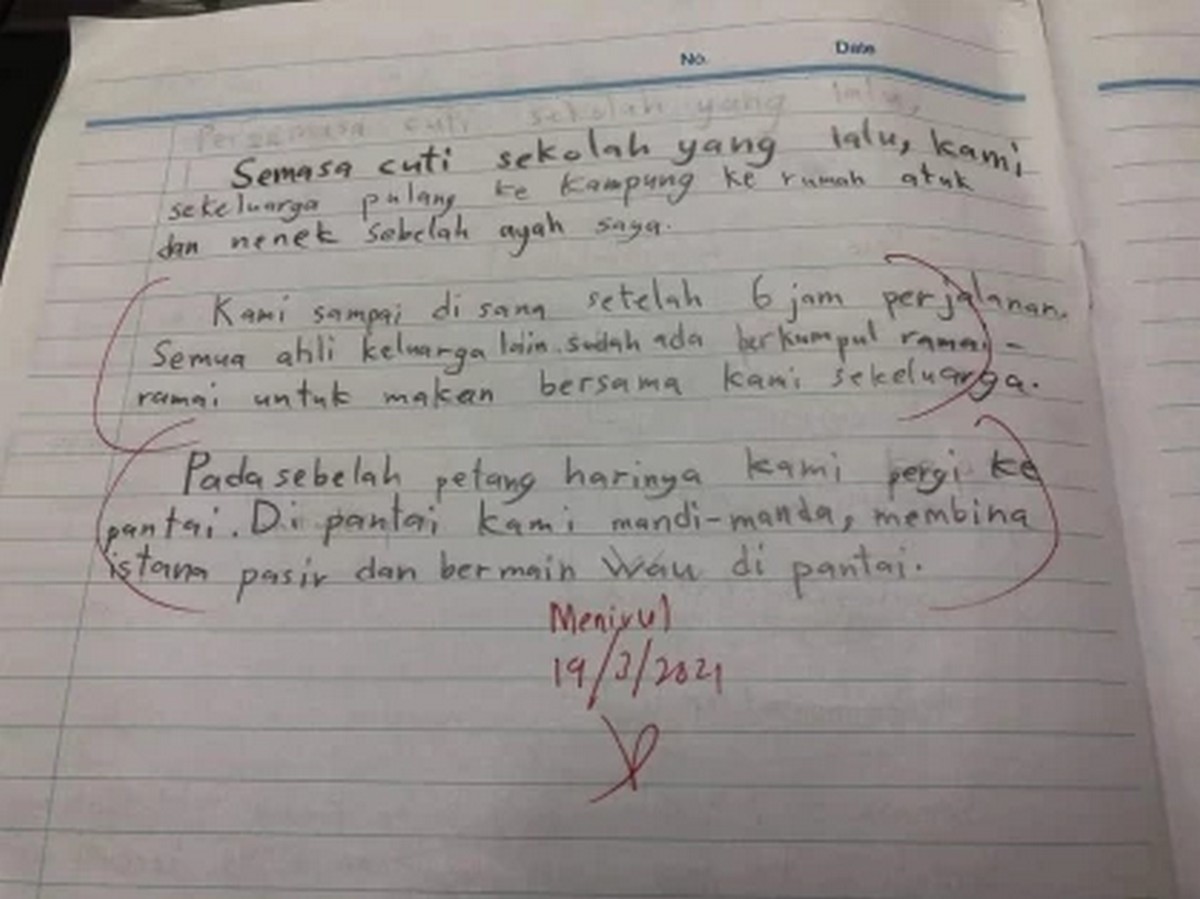 No.
Date
semasa cuti sekolah yang lalu,
Semasa cuti sekolah yang lalu, kami
sekeluarga pulang ke kampung ke rumah atuk
dan nenek sebelah ayah saya.
Kami sampai di sana setelah 6 jam perjalanan.
Semua ahli keluarga lain sudah ada berkumpul ramai-
ramai untuk makan bersama kami sekeluarga.
Pada sebelah petang harinya kami pergi ke
pantai. Di pantai kami mandi-manda, membina
istana pasir dan bermain wau di pantai.
Menirul
19/3/2021